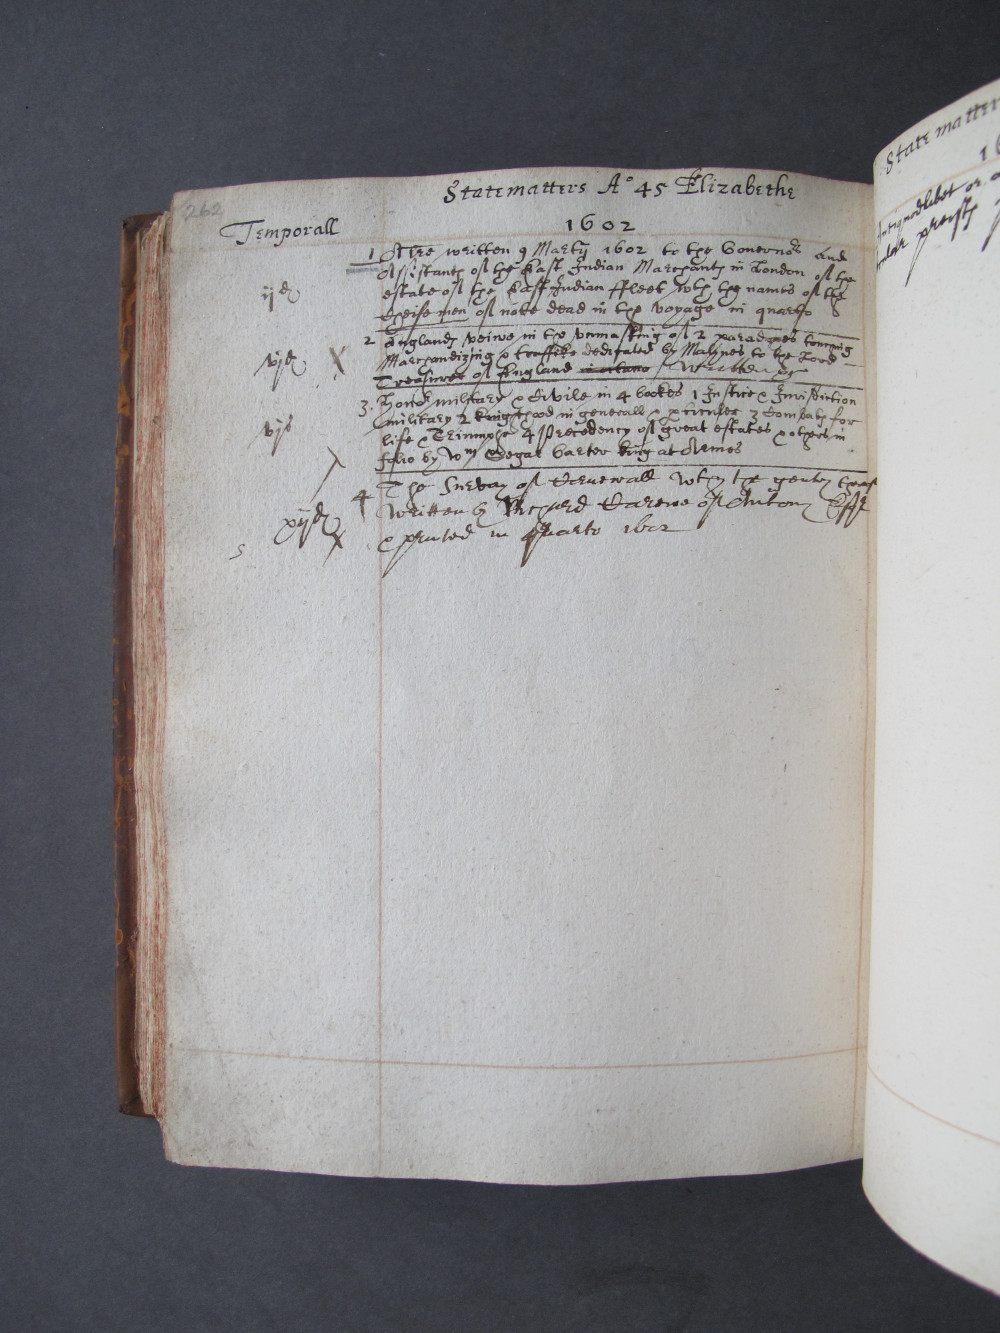 262
State matters Ao 45 Elizabethe
Temporall
1602
1 A tre written 9 Martij 1602 to the Governor and
Assistants of the East Indian Marchants in London of the
ijd
estate of the East Indian ffleet wth the names of the
cheife men of note dead in the voyage in quarto
2 Englands veiwe in the unmasking of 2 paradoxes
vjd X
Marchandizing & traffike dedicated by Malynes to the Lord
Treasurer of England written by
3. Honor military & Civile in 4 bookes 1 Justice & Jurisdiction
military 2 knighthood in generall & pticuler 3 Combats for
vjs
life & Triumphe 4 Precedency of great estates & others in
folio by Wm Segar Garter king at Armes
4 The Survay of Cornewall
xijd
written by Richard Carewe of Antony Esqr
& printed in Quarto 1602
State matters
preists